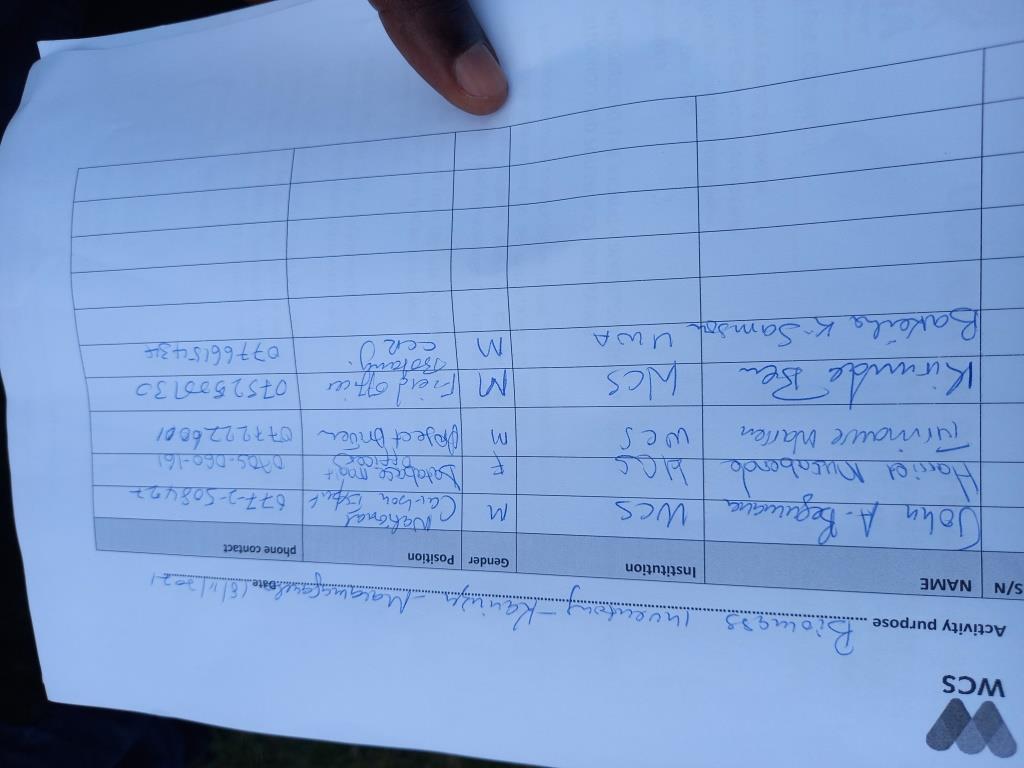 WCS
Activity purpose Biomass Inventory - Kaniyo - Date 18/11/2021
S/N NAME Institution Gender Position phone contact
John A. Begumana WCS M National Carbon Expert 077-2-508427
Harriet Musabende WCS F Database mgt officer 0705-060-161
Turinawe Warren WCS M Project Driver 077226001
Kirunda Ben WCS M Field officer 0752500130
Baketiha K. Samson UWA M 0776615434